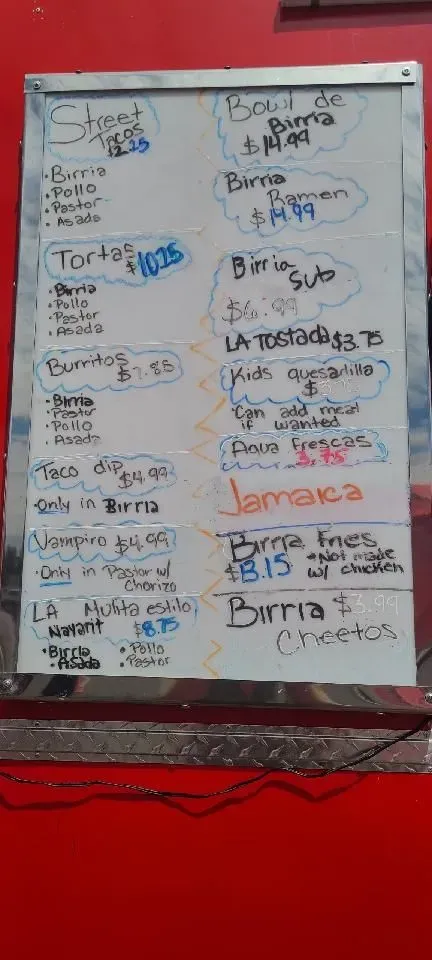 Street
Tacos
$2.25
• Birria
• Pollo
• Pastor
• Asada
Tortas
$10.25
• Birria
• Pollo
• Pastor
• Asada
Burritos
$7.85
• Birria
• Pastor
• Pollo
• Asada
Taco dip
$4.99
• Only in Birria
Vampiro $4.99
• Only in Pastor w/
Chorizo
LA Mulita estilo
Nayarit $8.75
• Birria • Pollo
• Asada • Pastor
Bowl de
Birria
$14.99
Birria
Ramen
$14.99
Birria
Sub
$6.99
LA TOSTADA $3.75
Kids quesadilla
$
Can add meat
if wanted
Agua Frescas
3.75
Jamaica
Birria Fries
$13.15 *Not made
w/ chicken
Birria $3.99
Cheetos